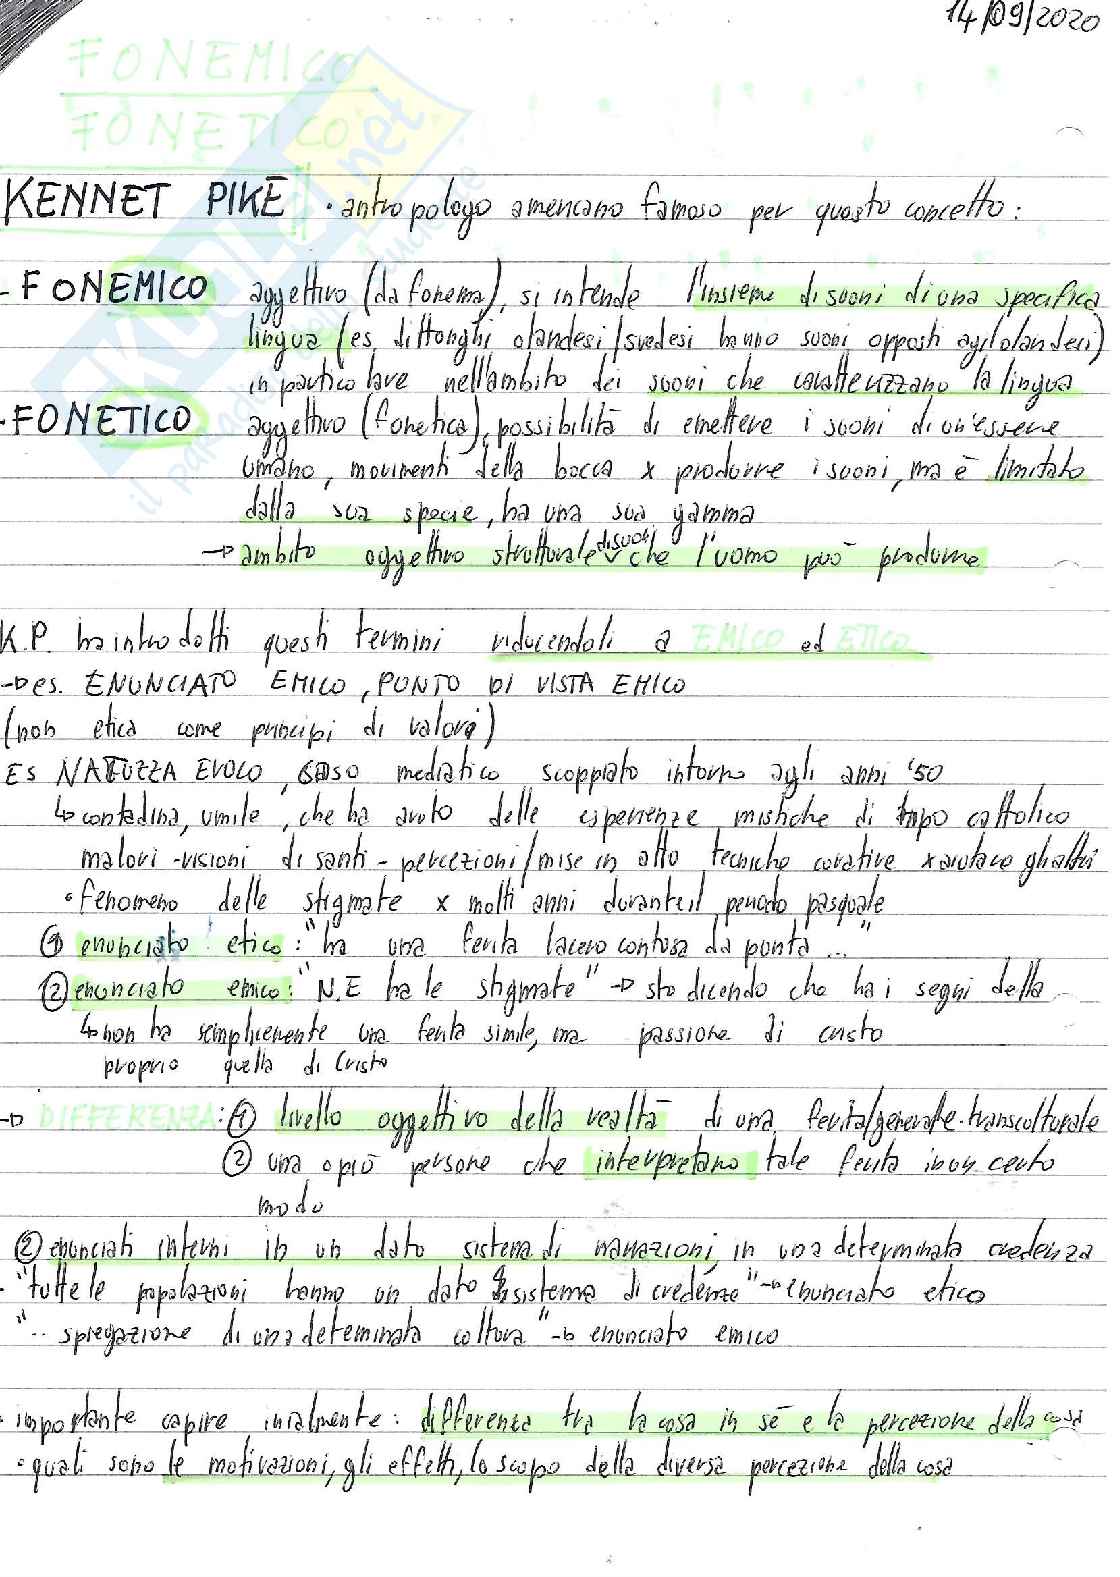 14/09/2020
FONEMICO
FONETICO
KENNET PIKE • antropologo americano famoso per questo concetto:
- FONEMICO aggettivo (da fonema), si intende l'insieme di suoni di una specifica
lingua (es. dittonghi olandesi/svedesi hanno suoni opposti agli olandesi)
in particolare nell'ambito dei suoni che caratterizzano la lingua
- FONETICO aggettivo (fonetica), possibilità di emettere i suoni di un'essere
umano, movimenti della bocca x produrre i suoni, ma è limitato
dalla sua specie, ha una sua gamma
→ ambito oggettivo strutturale di suoni che l'uomo può produrre
K.P. ha introdotti questi termini riducendoli a EMICO ed ETICO
→ es. ENUNCIATO EMICO, PUNTO DI VISTA EMICO
(non etica come principi di valori)
ES NATUZZA EVOLO, caso mediatico scoppiato intorno agli anni '50
↳ contadina, umile, che ha avuto delle esperienze mistiche di tipo cattolico
malori - visioni di santi - percezioni/mise in atto tecniche curative x aiutare gli altri
• fenomeno delle stigmate x molti anni durante il periodo pasquale
① enunciato etico: "ha una ferita lacero contusa da punta..."
② enunciato emico: "N.E ha le stigmate" → sto dicendo che ha i segni della
↳ non ha semplicemente una ferita simile, ma passione di cristo
proprio quella di Cristo
→ DIFFERENZA: ① livello oggettivo della realtà di una ferita/generale-transculturale
② una o più persone che interpretano tale ferita in un certo
modo
② enunciati interni in un dato sistema di narrazioni, in una determinata credenza
- "tutte le popolazioni hanno un dato sistema di credenze" → enunciato etico
"... spiegazione di una determinata cultura" → enunciato emico
• importante capire inialmente: differenza tra la cosa in sé e la percezione della cosa
• quali sono le motivazioni, gli effetti, lo scopo della diversa percezione della cosa
SKUOLA.net
il paradiso dello studente